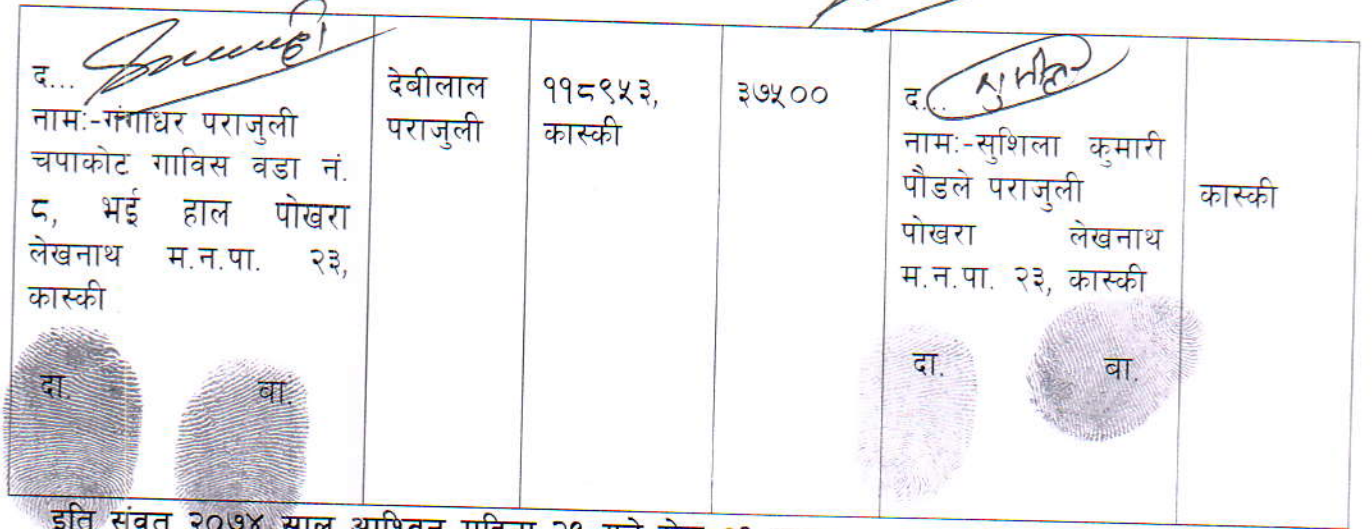 द...
नामः-गंगाधर पराजुली
चपाकोट गाविस वडा नं.
८, भई हाल पोखरा
लेखनाथ म.न.पा. २३,
कास्की
दा. बा.
देबीलाल
पराजुली
११८९५३,
कास्की
३७५००
द...
नामः-सुशिला कुमारी
पौडले पराजुली
पोखरा लेखनाथ
म.न.पा. २३, कास्की
दा. बा.
कास्की
इति संवत २०७४ साल आश्विन महिना